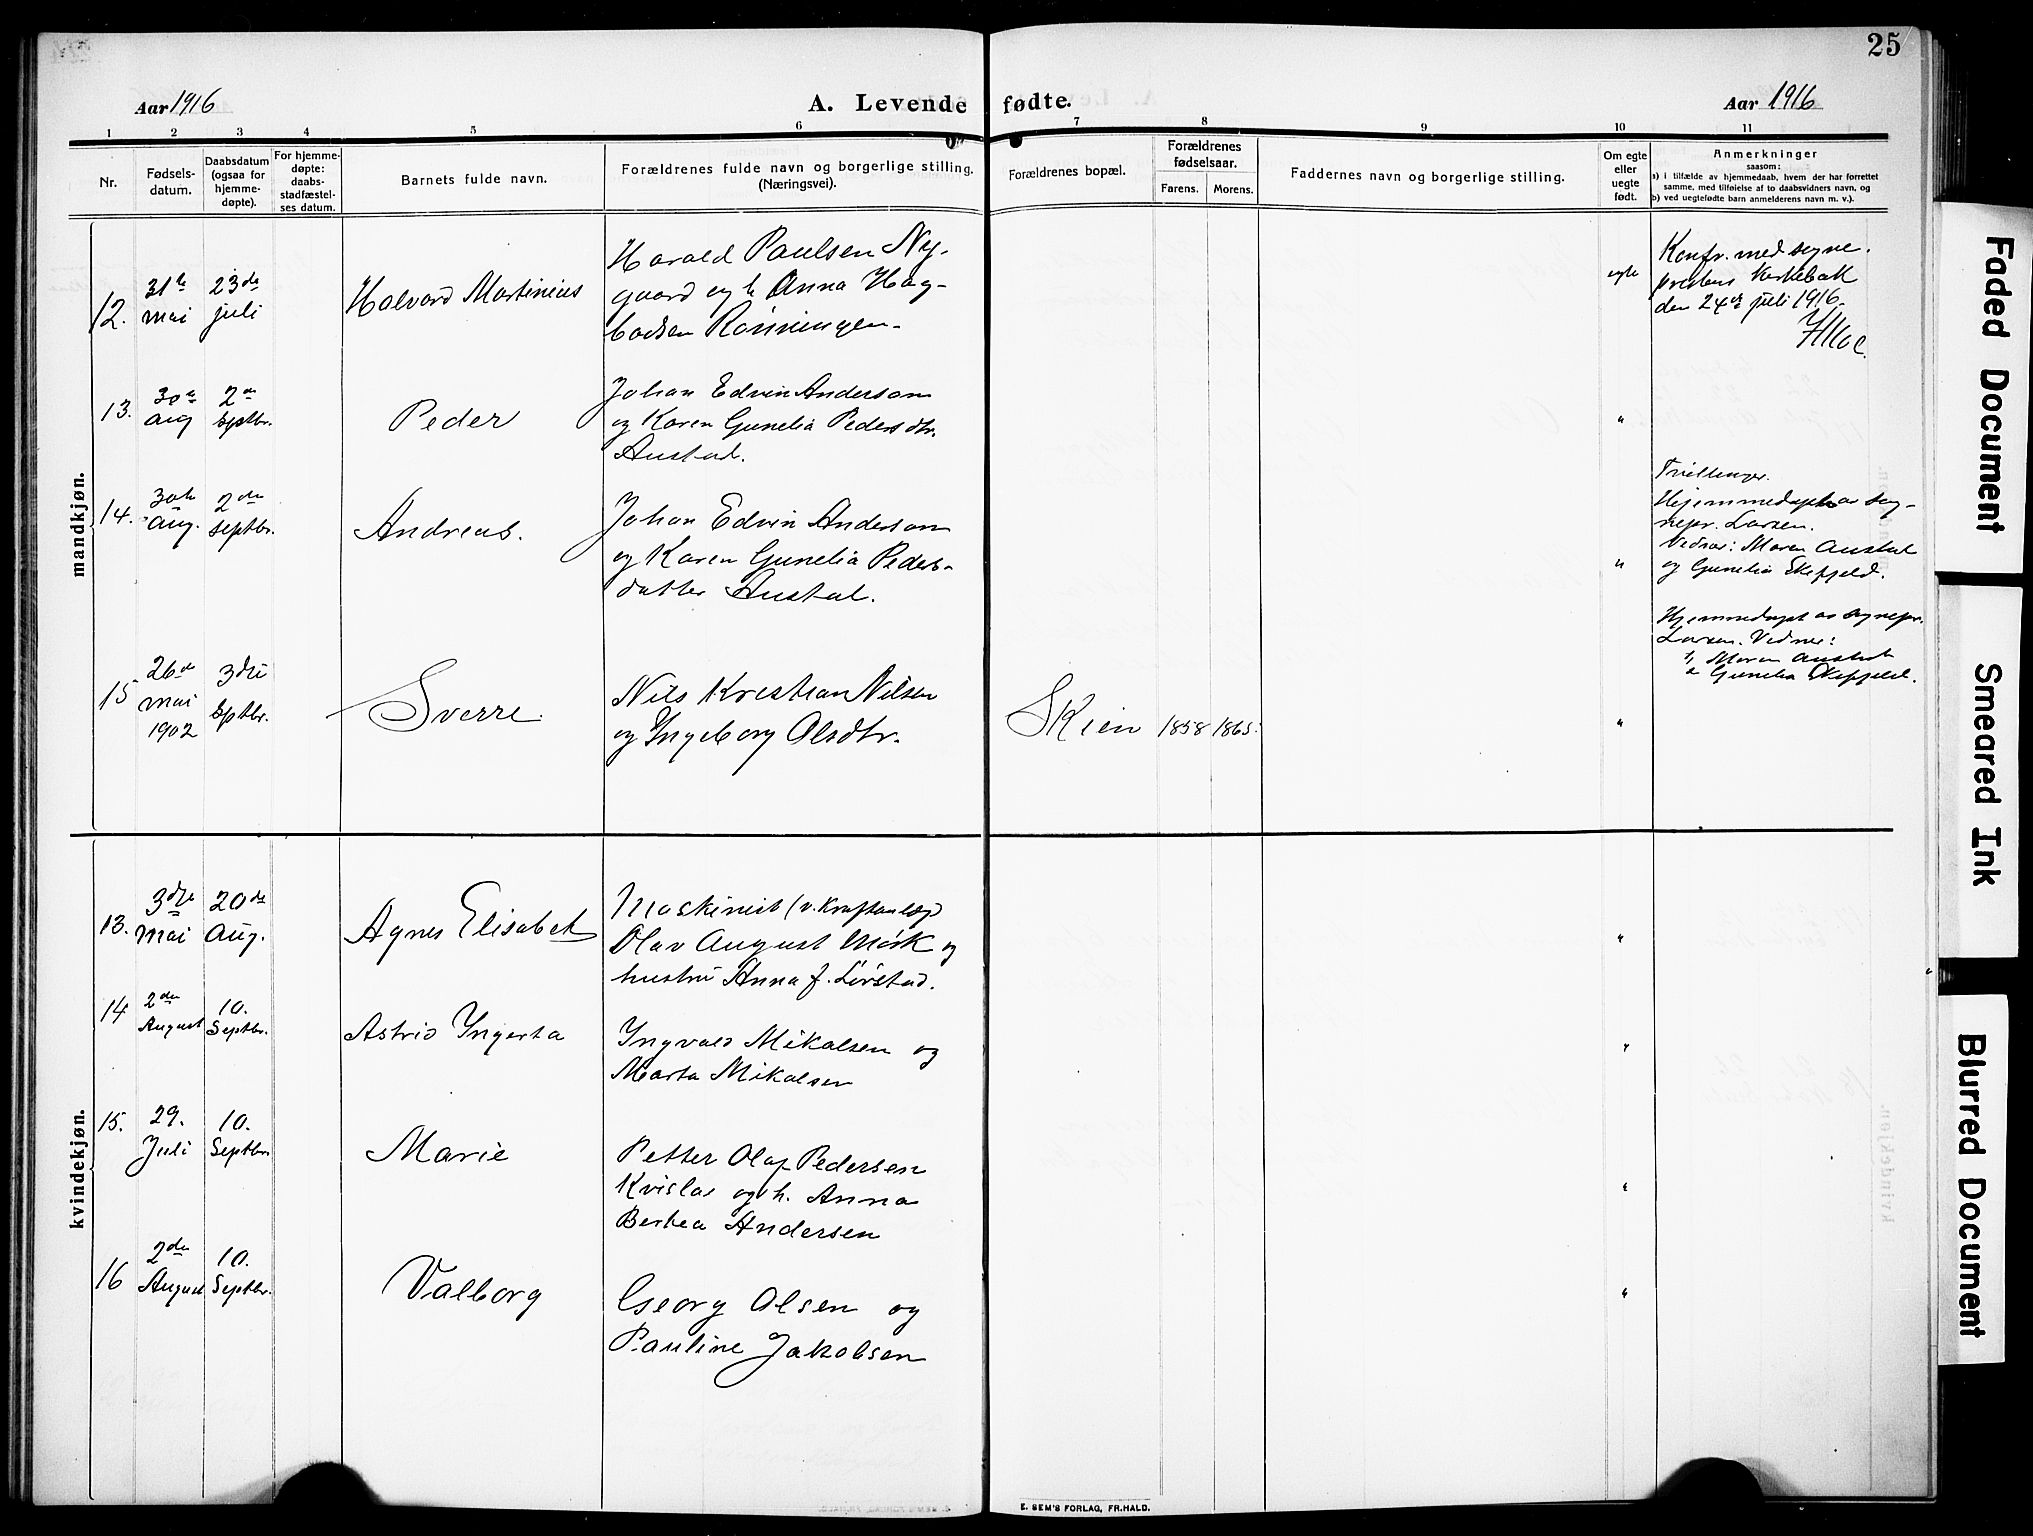 25
Aar 1916
A. Levende fødte.
Aar 1916
1 2 3 4 5 6 7 8 9 10 11
Nr.
Fødsels-
datum.
Daabsdatum
(ogsaa for
hjemme-
døpte).
For hjemme-
døpte:
daabs-
stadfæstel-
ses datum.
Barnets fulde navn.
Forældrenes fulde navn og borgerlige stilling.
(Næringsvei).
Forældrenes bopæl.
Forældrenes
fødselsaar.
Farens. Morens.
Faddernes navn og borgerlige stilling.
Om egte
eller
uegte
født.
Anmerkninger
saasom:
a) i tilfælde av hjemmedaab, hvem der har forrettet
samme, med tilføielse af to daabsvidners navn, og
b) ved uegtefødte barn anmelderens navn m. v.).
mandkjøn.
12.
31te
mai
23de
juli
Halvard Martinius
Harald Paulsen Ny-
gaard og h. Anna Hag-
badsen Rønningen.
egte
Konfr. med sogne-
prestens kirkebok
den 24de juli 1916.
13.
30te
aug
2den
Septbr.
Peder
Johan Edvin Anderson
og Karen Gunelia Pedersdtr.
Austad.
"
14.
30te
Aug.
2den
septbr.
Andreas.
Johan Edvin Anderson
og Karen Gunelia Peders-
datter Austad.
"
Tvillinger.
Hjemmedøpt av sog-
nepr. Larsen.
Vidner: Maren Austad
og Gunelia Skefjeld.
Hjemmedøpt av sognepr.
Larsen. Vidner:
1, Maren Austad
2 Gunelia Skefjeld.
15
26de
mai
1902
3die
Septbr.
Sverre.
Nils Kristian Nilsen
og Ingeborg Olsdtr.
Skien
1858
1865.
"
kvindekjøn.
13.
3die
Mai
20de
Aug.
Agnes Elisabet
Maskinist (v. Kraftanlæg)
Olav August Mørk og
hustru Anna f. Lørstad.
"
14
2den
August
10.
Septbr.
Astrid Ingerta
Ingvald Mikalsen og
Marta Mikalsen
"
15.
29.
Juli
10.
Septbr
Marie
Petter Olaf Pedersen
Kvislae og h. Anna
Berthea Andersen
"
16
2den
August
10.
Septbr.
Valborg
Georg Olsen og
Pauline Jakobsen
"
E. SEM'S FORLAG, FR.HALD.
Faded Document
Smeared Ink
Blurred Document